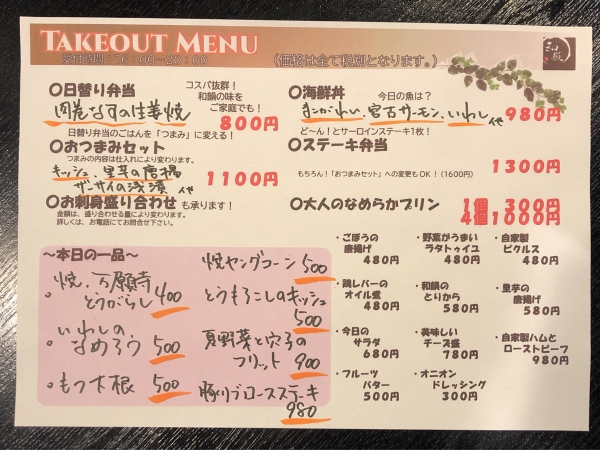 TAKEOUT MENU
受付時間：16：00～20：00
(価格は全て税別となります。)
○日替り弁当
コスパ抜群！
和韻の味を
ご家庭でも！
肉巻なすの生姜焼
800円
日替り弁当のごはんを「つまみ」に変える！
○おつまみセット
つまみの内容は仕入れにより変わります。
キッシュ、里芋の唐揚
ザーサイの浅漬 他
1100円
○お刺身盛り合わせ も承ります！
金額は、盛り合わせる量により変わります。
詳しくは、お電話にてお問合せ下さい。
○海鮮丼
今日の魚は？
まこがれい、宮古サーモン、いわし 他
980円
ど～ん！とサーロインステーキ1枚！
○ステーキ弁当
1300円
もちろん！「おつまみセット」への変更もOK！(1600円)
○大人のなめらかプリン
1個 300円
4個1000円
～本日の一品～
・焼、万願寺とうがらし 400
・いわしのなめろう 500
・もつ大根 500
焼ヤングコーン 500
とうもろこしのキッシュ 500
夏野菜と穴子のフリット 900
豚リブロースステーキ 980
・ごぼうの
唐揚げ
480円
・野菜がうまい
ラタトゥイユ
480円
・自家製
ピクルス
480円
・鶏レバーの
オイル煮
480円
・和韻の
とりから
580円
・里芋の
唐揚げ
580円
・今日の
サラダ
680円
・美味しい
チーズ盛
780円
・自家製ハムと
ローストビーフ
980円
・フルーツ
バター
500円
・オニオン
ドレッシング
300円